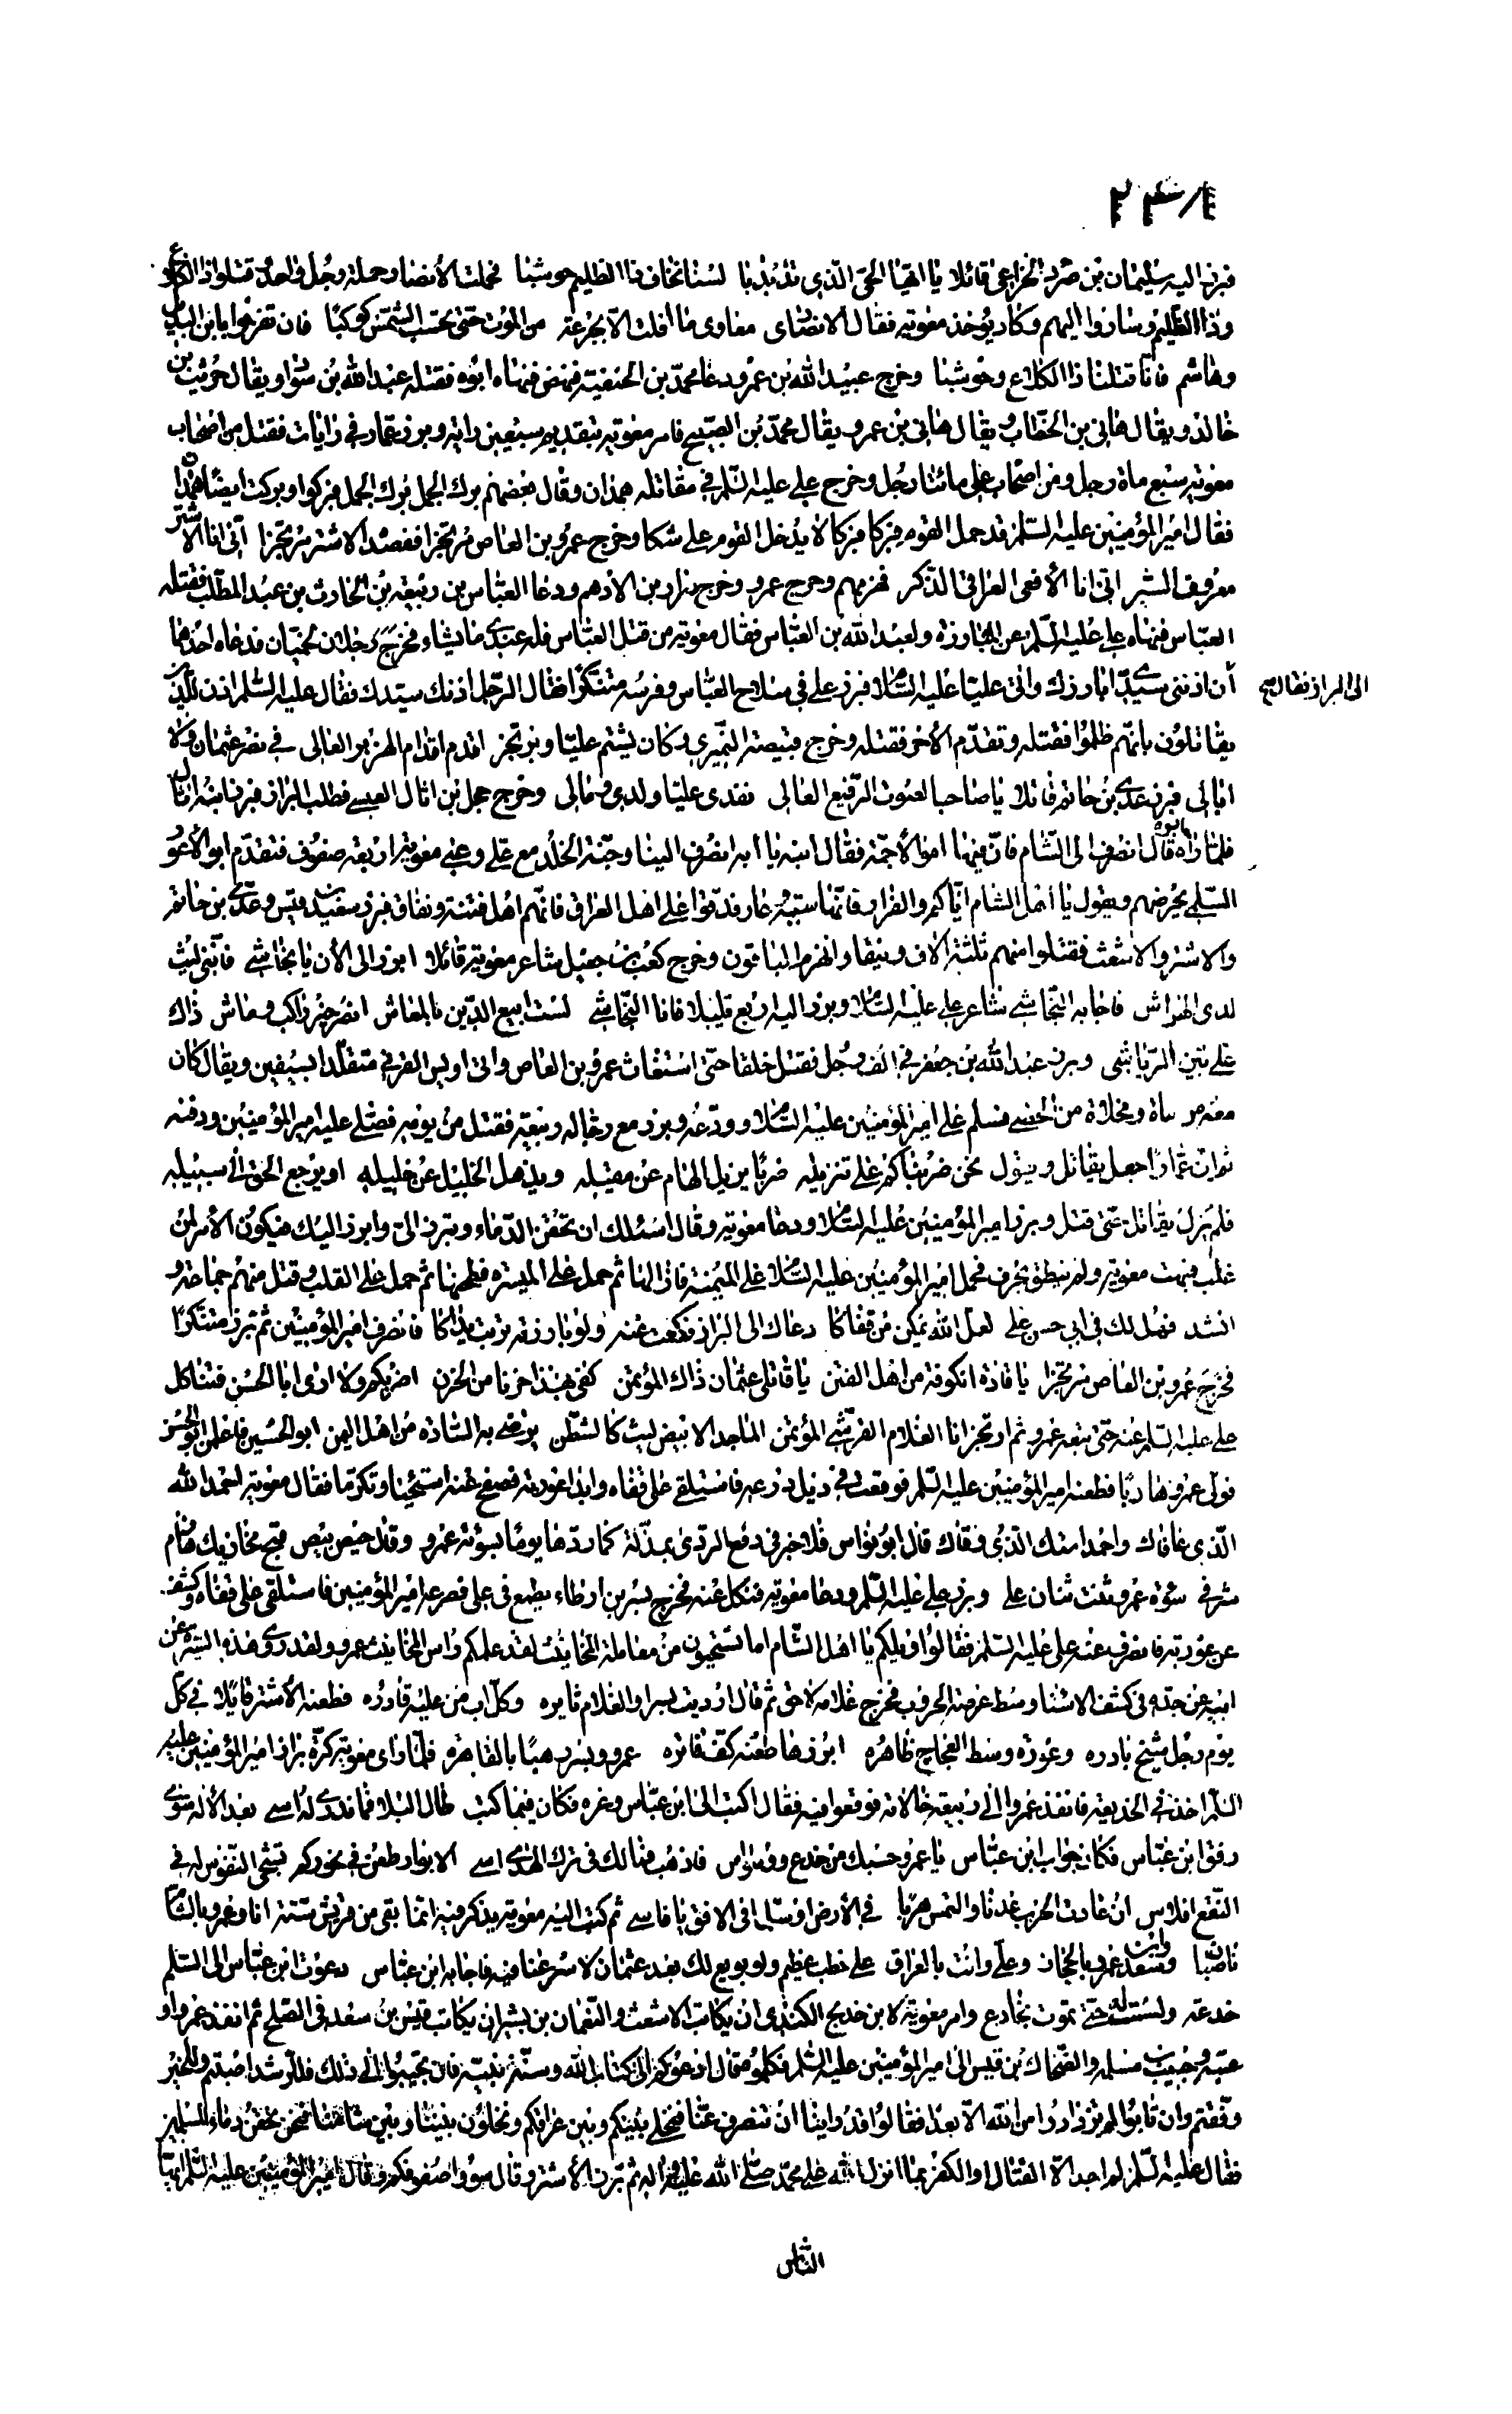 فبرز اليه سليمان بن صرد الخزاعي قائلا يا ايها الحي الذي تذبذبا لسنا نخاف ذا الظليم حوشبا فحملت الأنصار حملة رجل واحد قتلوا ذا الكلاع
وذا الظليم وساروا اليهم وكاد يؤخذ معوية فقال الانصاري معاوي ما افلت الا بجرعة من الموت حتى تحسب الشمس كوكبا فان تفرحوا بابن البديل
وهاشم فانا قتلنا ذا الكلاع وحوشبا وخرج عبيد الله بن عمر ودعا محمد بن الحنفية فنهض فنهاه ابوه فقتله عبد الله بن سوار ويقال حريث بن
خالد ويقال هاني بن الخطاب ويقال هاني بن عمرو ويقال محمد بن الصبيح فامر معوية بتقديم سبعين راية وبرز عمار في رايات فقتل من اصحاب
معوية سبع ماة رجل ومن اصحاب علي مائتا رجل وخرج علي عليه السلم في مقاتله همدان وقال بعضهم برك الجمل برك الجمل فبركوا وبركت ايضا همدان
فقال امير المؤمنين عليه السلم قد حمل القوم فبركا فبركا لا يدخل القوم على شكا وخرج عمرو بن العاص مرتجزا فقصد الاشتر مرتجزا اني انا الاشتر
معروف الشتر اني انا الأفعى العراقي الذكر فهزمهم وجرح عمرو وخرج براد بن الادهم ودعا العباس بن ربيعة بن الحارث بن عبد المطلب فقتله
العباس فنهاه علي عليه السلم عن المبارزة ولعبد الله بن العباس فقال معوية من قتل العباس فله عندي ما يشاء فخرج رجلان لخميان فدعاه احدهما
الى البراز فقال نعم
أن اذنني سيدي ابارزك واتى عليا عليه السلام فبرز علي في سلاح العباس وفرسه متنكرا فقال الرجل اذنك سيدك فقال عليه السلم اذن للذين
يقاتلون بانهم ظلموا فقتله وتقدم الأخر فقتله وخرج قبيصة النميري وكان يشتم عليا ويرتجز اقدم اقدام الهزبر العالي في نصر عثمان ولا
ابالي فبرز عدي بن حاتم قائلا يا صاحب الصوت الرفيع العالي نفدي عليا ولدي ومالي وخرج حجل بن اثال العبسي فطلب البراز فبرز ابنه اثال
فلما راه ابوه قال انصرف الى الشام فان فيها اموالا جمة فقال ابنه يا ابه انصرف الينا وجنة الخلد مع علي وعبى معوية اربعة صفوف فتقدم ابو الأعور
السلمي يحرضهم ويقول يا اهل الشام اياكم والفرار فانها سبة وعار فدقوا على اهل العراق فانهم اهل فتنة ونفاق فبرز سعيد بن قيس وعدي بن حاتم
والاشتر والاشعث فقتلوا منهم ثلثة الاف ونيفا وانهزم الباقون وخرج كعب بن جعيل شاعر معوية قائلا ابرز الى الأن يا نجاشي فانني ليث
لدى الهراش فاجابه النجاشي شاعر علي عليه السلام وبرز اليه اربع قليلا فانا النجاشي لست ابيع الدين بالمعاش انصر خير راكب وماش ذاك
علي بين الرياشى وبرز عبد الله بن جعفر في الف رجل فقتل خلقا حتى استغاث عمرو بن العاص واتى اويس القرني متقلدا بسيفين ويقال كان
معه مرماة ومخلاة من الحصى فسلم على امير المؤمنين عليه السلام وودعه وبرز مع رجالة ربيعة فقتل من يومه فصلى عليه امير المؤمنين ودفنه
ثم ان عمارا جعل يقاتل ويقول نحن ضربناكم على تنزيله ضربا يزيل الهام عن مقيله ويذهل الخليل عن خليله او يرجع الحق الى سبيله
فلم يزل يقاتل حتى قتل وبرز امير المؤمنين عليه السلام ودعا معوية وقال اسئلك ان تحقن الدماء وتبرز الي وابرز اليك فيكون الأمر لمن
غلب فبهت معوية ولم ينطق بحرف فحمل امير المؤمنين عليه السلام على الميمنة فازالها ثم حمل على الميسرة فطحنها ثم حمل على القلب وقتل منهم جماعة و
انشد فهل لك في ابي حسن علي لعل الله يمكن من قفاكا دعاك الى البراز فكعت عنه ولو بارزته تربت يداكا فانصرف امير المؤمنين ثم برز متنكرا
فخرج عمرو بن العاص مرتجزا يا قادة الكوفة من اهل الفتن يا قاتلي عثمان ذاك المؤتمن كفى بهذا حزنا من الحزن اضربكم ولا ارى ابا الحسن فتناكل
علي عليه السلم عنه حتى تبعه عمرو ثم ارتجز انا الغلام القرشي المؤتمن الماجد الابيض ليث كالشطن يرضى به السادة من اهل اليمن ابو الحسين فاعلمن ابو الحسن
فولى عمرو هاربا فطعنه امير المؤمنين عليه السلم فوقعت في ذيل درعه فاستلقى على قفاه وابدا عورته فصفح عنه استحياء وتكرما فقال معوية احمد الله
الذي عافاك واحمد استك الذي وقاك قال ابو نواس فلا خير في دفع الردى بمذلة كما ردها يوما بسوئته عمرو وقال حيص بيص قبح مخازيك هازم
شرفي سوءة عمرو ثنت سنان علي وبرز علي عليه السلم ودعا معوية فنكل عنه فخرج بسر بن ارطاة يطمع في علي فصرعه امير المؤمنين فاستلقى على قفاه وكشف
عن عورته فانصرف عنه علي عليه السلم فقالوا ويلكم يا اهل الشام اما تستحيون من معاملة المخانيث لقد علمكم راس المخانيث عمرو ولقد روى هذه السيرة عن
ابيه عن جده في كشف الاستاه وسط عرصة الحروب فخرج غلامه لاحق ثم قال ارديت بسرا والغلام ثايره وكل اب من عليه قادره فطعنه الأشتر قايلا في كل
يوم رجل شيخ بادره وعورة وسط العجاج ظاهره ابرزها طعنة كف فاتره عمرو وبسر رهبا بالقاهره فلما راى معوية كثرة براز امير المؤمنين عليه
السلم اخذ في الخديعة فانفذ عمروا الى ربيعة خالاته فوقعوا فيه فقال اكتب الى ابن عباس وغره فكان فيما كتب طال البلاء فما ندري له اسى بعد الأله سوى
رفق ابن عباس فكان جواب ابن عباس يا عمرو حسبك من خدع ووسواس فاذهب فما لك في ترك الهدى اسى الا بوادر طعن في نحوركم تشجى النفوس له في
النقع افلاس ان عادت الحرب عدنا والتمس هربا في الأرض او سلما في الافق يا قاسي ثم كتب اليه معوية يذكر فيه انما بقي من قريش ستة انا وعمرو بالشام
ناصبان وسعد وابن عمر بالحجاز وعلي وانت بالعراق على خطب عظيم ولو بويع لك بعد عثمان لاسرعنا فيه فاجابه ابن عباس دعوت ابن عباس الى السلم
خدعة وليست له حتى تموت بخادع وامر معوية لابن خديج الكندي ان يكاتب الاشعث والنعمان بن بشير ان يكاتب قيس بن سعد في الصلح ثم انفذ عمروا و
عتبة وحبيب بن مسلمة والضحاك بن قيس الى امير المؤمنين عليه السلم فكلموه فقال ادعوكم الى كتاب الله وسنة نبيه فان تجيبوا الى ذلك فللرشد اصبتم وللخير
وفقتم وان تابوا لم تزدادوا من الله الا بعدا فقالوا قد راينا ان تنصرف عنا فنخلي بينكم وبين عراقكم وتخلون بيننا وبين شامنا فنحن نحقن دماء المسلمين
فقال عليه السلم لم اجد الا القتال او الكفر بما انزل الله على محمد صلى الله عليه واله ثم برز الأشتر وقال سووا صفوفكم وقال امير المؤمنين عليه السلم ايها
الناس